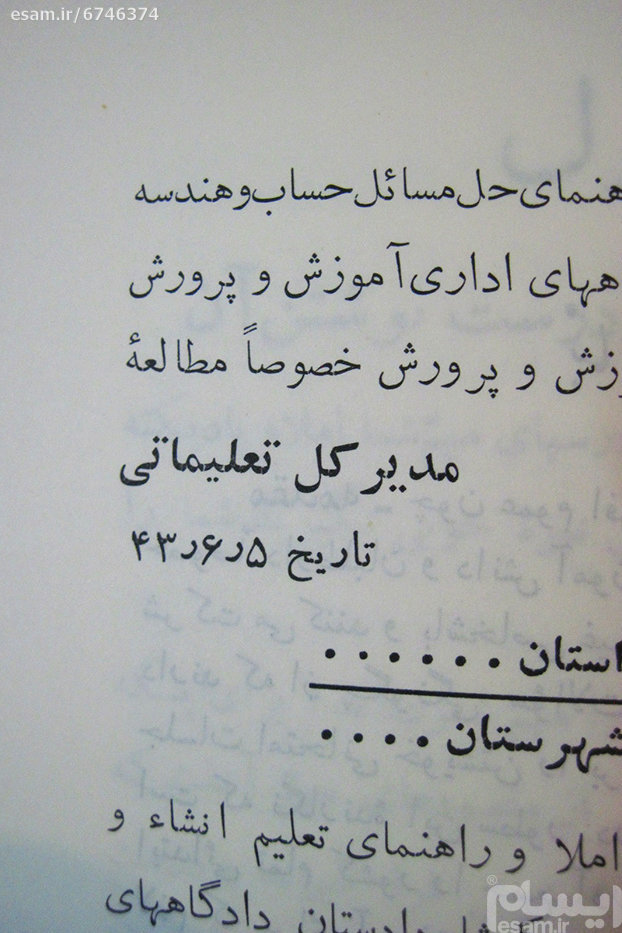 esam.ir/6746374
هنمای حل مسائل حساب و هندسه
ههای اداری آموزش و پرورش
زش و پرورش خصوصاً مطالعهٔ
مدیر کل تعلیماتی
تاریخ ۵ر۶ر۴۳
استان . . . . . .
شهرستان . . . .
املا و راهنمای تعلیم انشاء و
دادستان دادگاههای
ایسام®
esam.ir